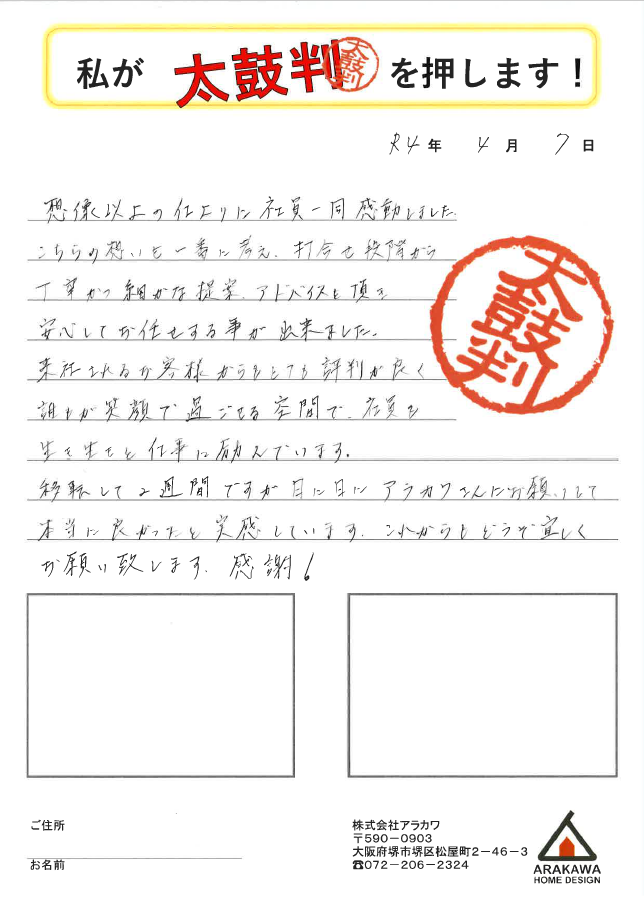 私が 太鼓判 太鼓判 を押します！
R4年 4月 7日
想像以上の仕上りに社員一同感動しました。
こちらの想いを一番に考え、打合せ段階から
丁寧かつ細かな提案、アドバイスを頂き
安心してお任せする事が出来ました。
来社されるお客様からもとても評判が良く
誰もが笑顔で過ごせる空間で、社員も
生き生きと仕事に励んでいます。
移転して2週間ですが日に日にアラカワさんにお願いして
本当に良かったと実感しています。これからもどうぞ宜しく
お願い致します。感謝!
太鼓判
ご住所
お名前
株式会社アラカワ
〒590-0903
大阪府堺市堺区松屋町2-46-3
☎072-206-2324
ARAKAWA
HOME DESIGN